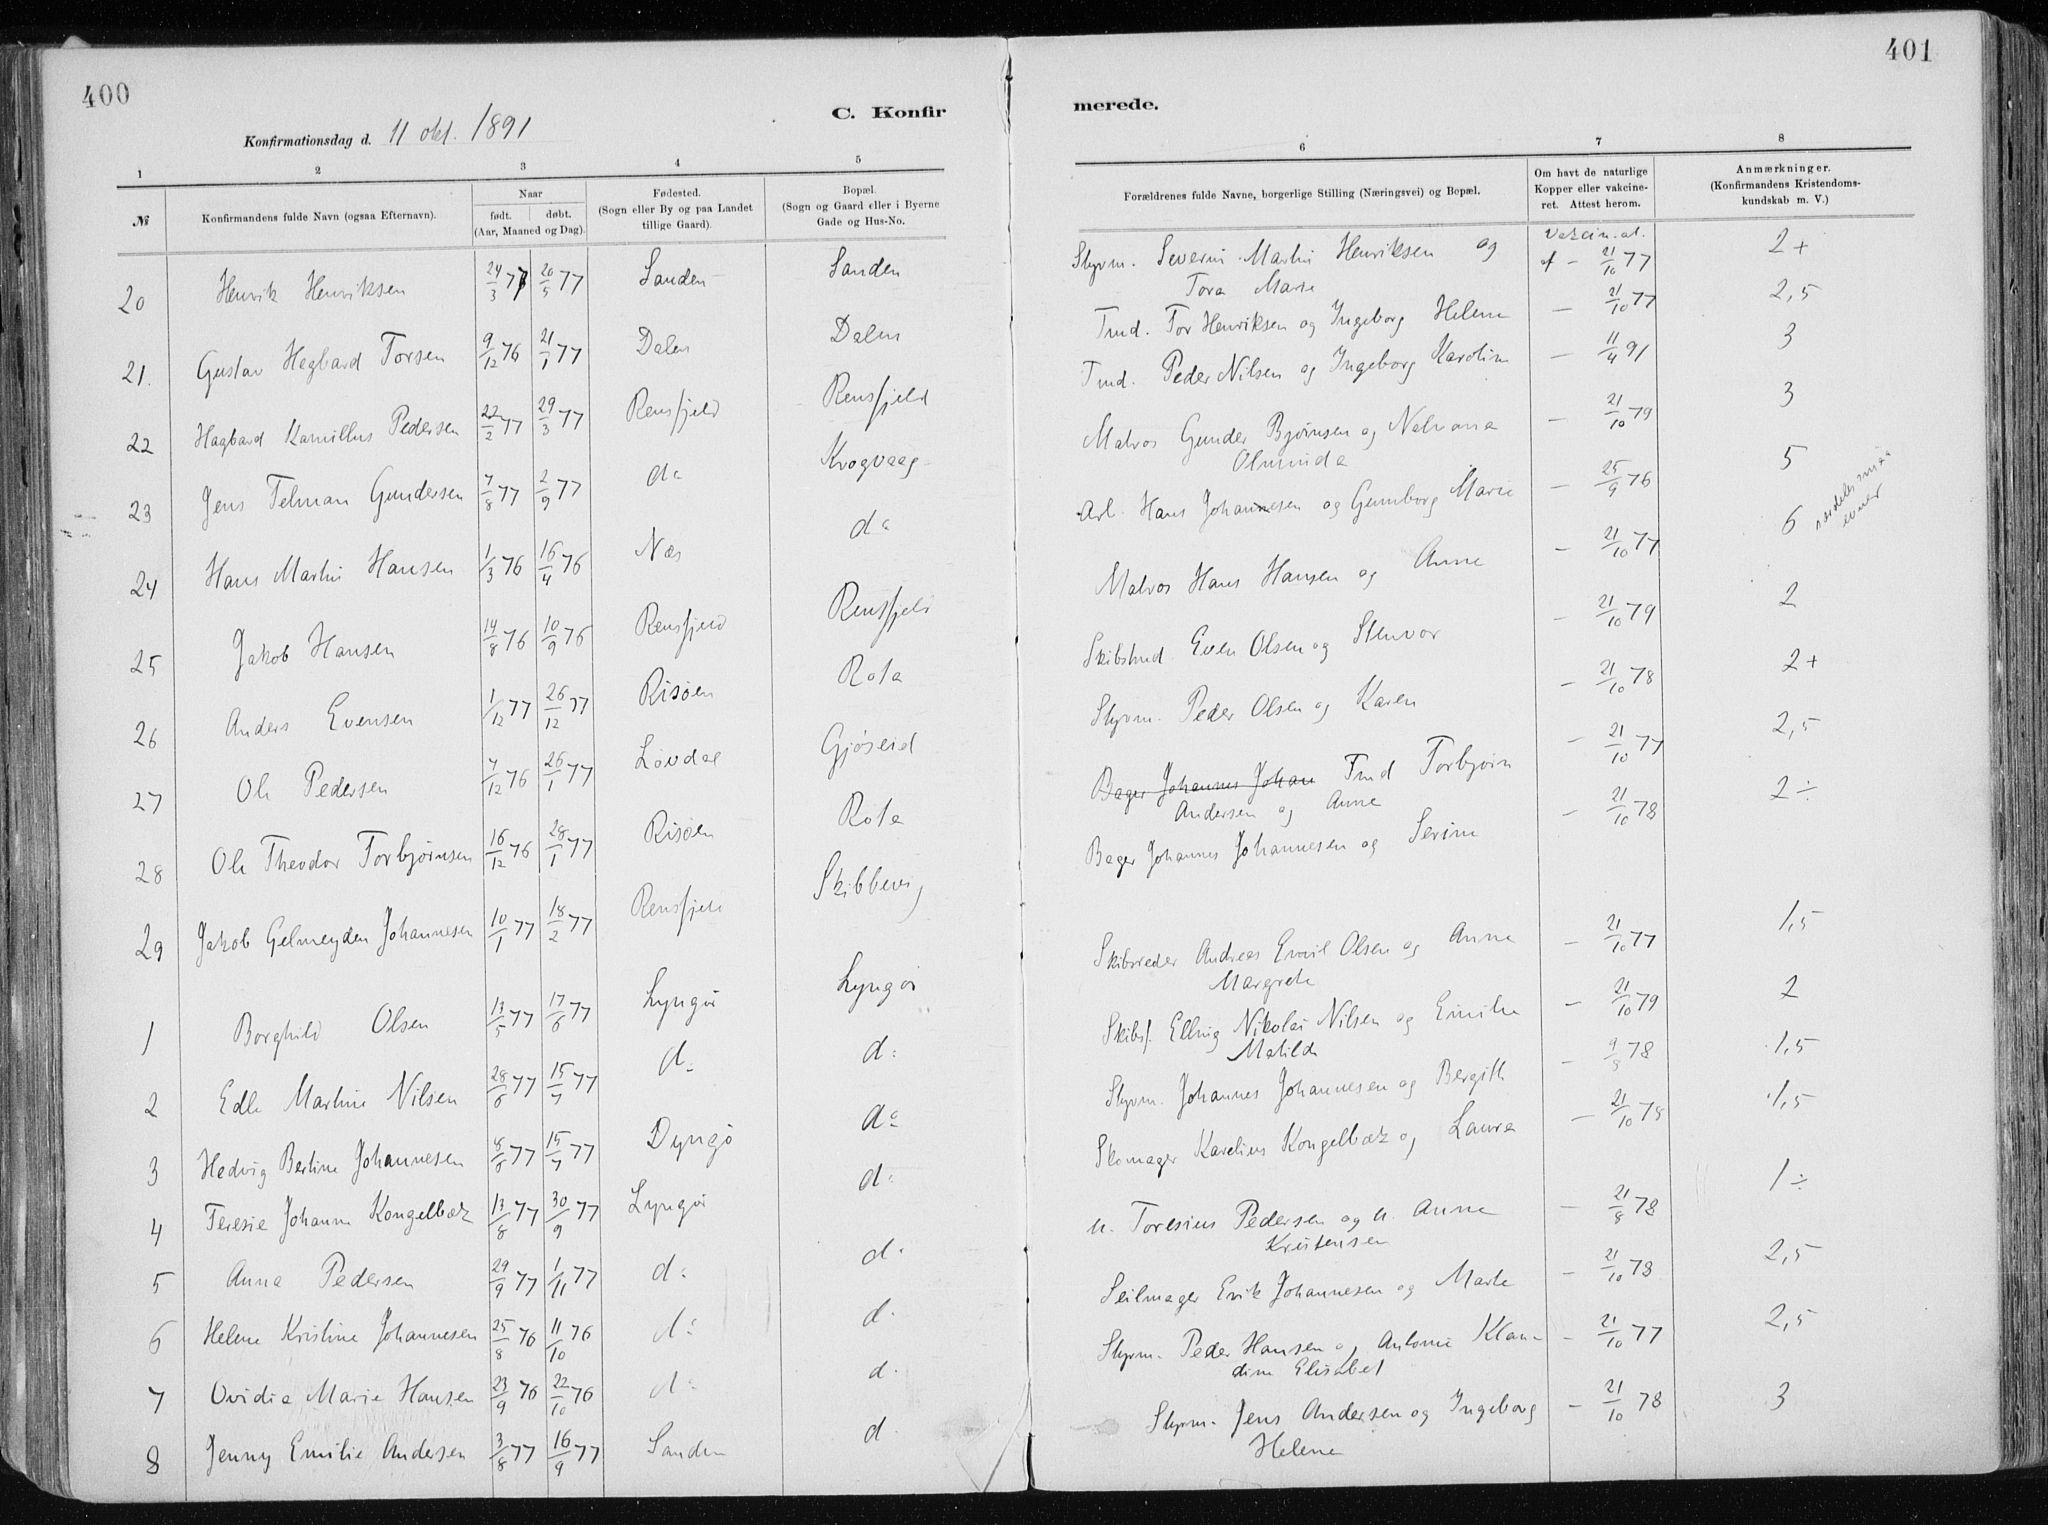 400
C. Konfir
Konfirmationsdag d. 11 okt. 1891
1 2 3 4 5
№
Konfirmandens fulde Navn (ogsaa Efternavn).
Naar
født. døbt.
(Aar, Maaned og Dag).
Fødested.
(Sogn eller By og paa Landet
tillige Gaard).
Bopæl.
(Sogn og Gaard eller i Byerne
Gade og Hus-No.
20 Henrik Henriksen 24/3 77 20/5 77 Sanden Sanden
21. Gustav Hagbard Torsen 9/12 76 21/1 77 Dalen Dalen
22 Hagbard Kamillus Pedersen 22/2 77 29/3 77 Rensfjeld Rensfjeld
23 Jens Telman Gundersen 7/8 77 2/9 77 do Krogvaag
24 Hans Martin Hansen 1/3 76 16/4 76 Næs do
25 Jakob Hansen 14/8 76 10/9 76 Rensfjeld Rensfjeld
26 Anders Evensen 1/12 77 26/12 77 Risøen Rota
27 Ole Pedersen 7/12 76 26/1 77 Løvdal Gjøseid
28 Ole Theodor Torbjørnsen 16/12 76 28/1 77 Risøen Rota
29 Jakob Gelmeyden Johannesen 10/1 77 18/2 77 Rensfjeld Skibbevig
1 Borghild Olsen 13/5 77 17/6 77 Lyngør Lyngør
2 Edle Martine Nilsen 28/6 77 15/7 77 do do
3 Hedvig Bertine Johannesen 8/6 77 15/7 77 Dyngø do
4 Teresie Johanne Kongelbæk 13/8 77 30/9 77 Lyngør do
5 Anna Pedersen 29/9 77 1/11 77 do do
6 Helene Kristine Johannesen 25/8 76 11/10 76 do do
7 Ovidia Marie Hansen 23/9 76 22/10 76 do do
8 Jenny Emilie Andersen 3/8 77 16/9 77 Sanden do
401
merede.
6 7 8
Forældrenes fulde Navne, borgerlige Stilling (Næringsvei) og Bopæl.
Om havt de naturlige
Kopper eller vakcine-
ret. Attest herom.
Anmærkninger.
(Konfirmandens Kristendoms-
kundskab m. V.)
Vakcin. at.
Styrm. Severin Martin Henriksen og af - 21/10 77 2+
Tora Marie
Tmd. Tor Henriksen og Ingeborg Helene - 21/10 77 2,5
Tmd. Peder Nilsen og Ingeborg Karoline - 11/4 91 3
Matros Gunder Bjørnsen og - 21/10 79 3
Olminda
Arb. Hans Johannesen og Gunborg Marie - 25/9 76 5
særdeles smaa
evner
Matros Hans Hansen og Anne - 21/10 77 6
Skibstmd. Even Olsen og Stenvor - 21/10 79 2
Styrm. Peder Olsen og Karen - 21/10 78 2+
Bager Johannes Johan Tmd Torbjørn - 21/10 77 2,5
Andersen og Anne
Bager Johannes Johannesen og Serine - 21/10 78 2÷
Skibsreder Andreas Emil Olsen og Anna - 21/10 77 1,5
Margrete
Skibsf. Elling Nikolai Nilsen og Emilie - 21/10 79 2
Matilde
Styrm. Johannes Johannesen og Bergith - 9/8 78 1,5
Skomager Karelius Kongelbæk og Laura - 21/10 78 1,5
u. Toresius Pedersen og u. Anna - 21/8 78 1÷
Kristensen
Seilmager Erik Johannesen og Marte - 21/10 78 2,5
Styrm. Peder Hansen og Antonie Klau- - 21/10 77 2,5
dine Elisabet
Styrm. Jens Andersen og Ingeborg - 21/10 78 3
Helene